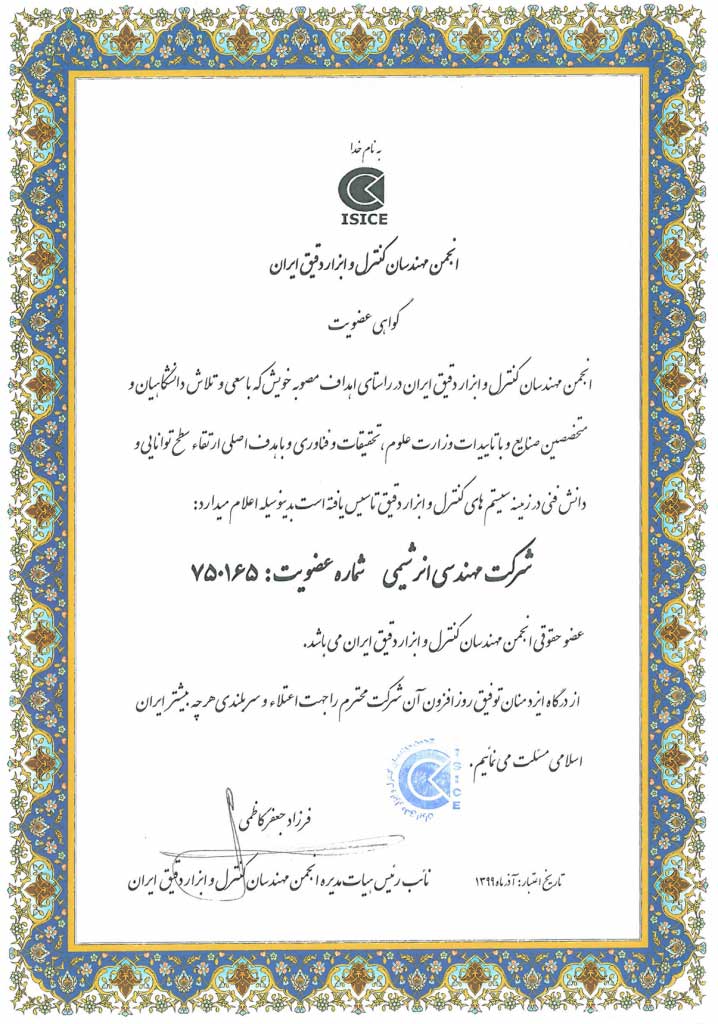 به نام خدا
ISICE
انجمن مهندسان کنترل و ابزار دقیق ایران
گواهی عضویت
انجمن مهندسان کنترل و ابزار دقیق ایران در راستای اهداف مصوبه خویش که با سعی و تلاش دانشگاهیان و
متخصصین صنایع و با تاییدات وزارت علوم، تحقیقات و فناوری و با هدف اصلی ارتقاء سطح توانایی و
دانش فنی در زمینه سیستم های کنترل و ابزار دقیق تاسیس یافته است بدینوسیله اعلام میدارد:
شرکت مهندسی انرشیمی شماره عضویت: ۷۵۰۱۶۵
عضو حقوقی انجمن مهندسان کنترل و ابزار دقیق ایران می باشد.
از درگاه ایزد منان توفیق روز افزون آن شرکت محترم را جهت اعتلاء و سربلندی هر چه بیشتر ایران
اسلامی مسئلت می نمائیم.
ISICE
فرزاد جعفر کاظمی
نائب رئیس هیات مدیره انجمن مهندسان کنترل و ابزار دقیق ایران
تاریخ اعتبار: آذر ماه ۱۳۹۹